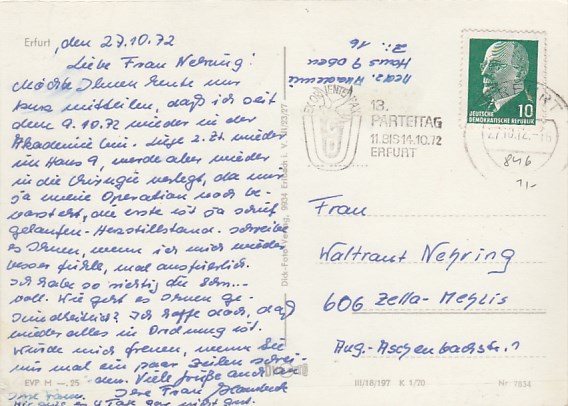 Erfurt, den 27.10.72
Liebe Frau Nehring!
Möchte Ihnen heute nur
kurz mitteilen, daß ich seit
dem 9.10.72 wieder in der
Akademie bin. Liege z. Zt. wieder
im Haus 9, werde aber wieder
in die Chirurgie verlegt, da mir
ja meine Operation noch be-
vorsteht, die erste ist ja schief
gelaufen - Herzstillstand. Schreibe
es Ihnen, wenn ich mich wieder
besser fühle, mal ausführlich.
Ich habe so richtig die
voll. Wie geht es Ihnen ge-
sundheitlich? Ich hoffe doch, daß
wieder alles in Ordnung ist.
Würde mich freuen, wenn Sie
mir mal ein paar Zeilen schrei-
ben. Viele Grüße auch an
Ihre Frau
EVP M —.25
Medz. Akademie
Haus 9 oben
Zi. 16
Dick-Foto-Verlag, 9934 Erlbach i. V.
13.
PARTEITAG
11.BIS 14.10.72
ERFURT
10
DEUTSCHE
DEMOKRATISCHE REPUBLIK
27.10.72
846
1,-
Frau
Waltraut Nehring
606 Zella-Mehlis
Aug.-Aschenbachstr. 1
III/18/197 K 1/70
Nr 7834